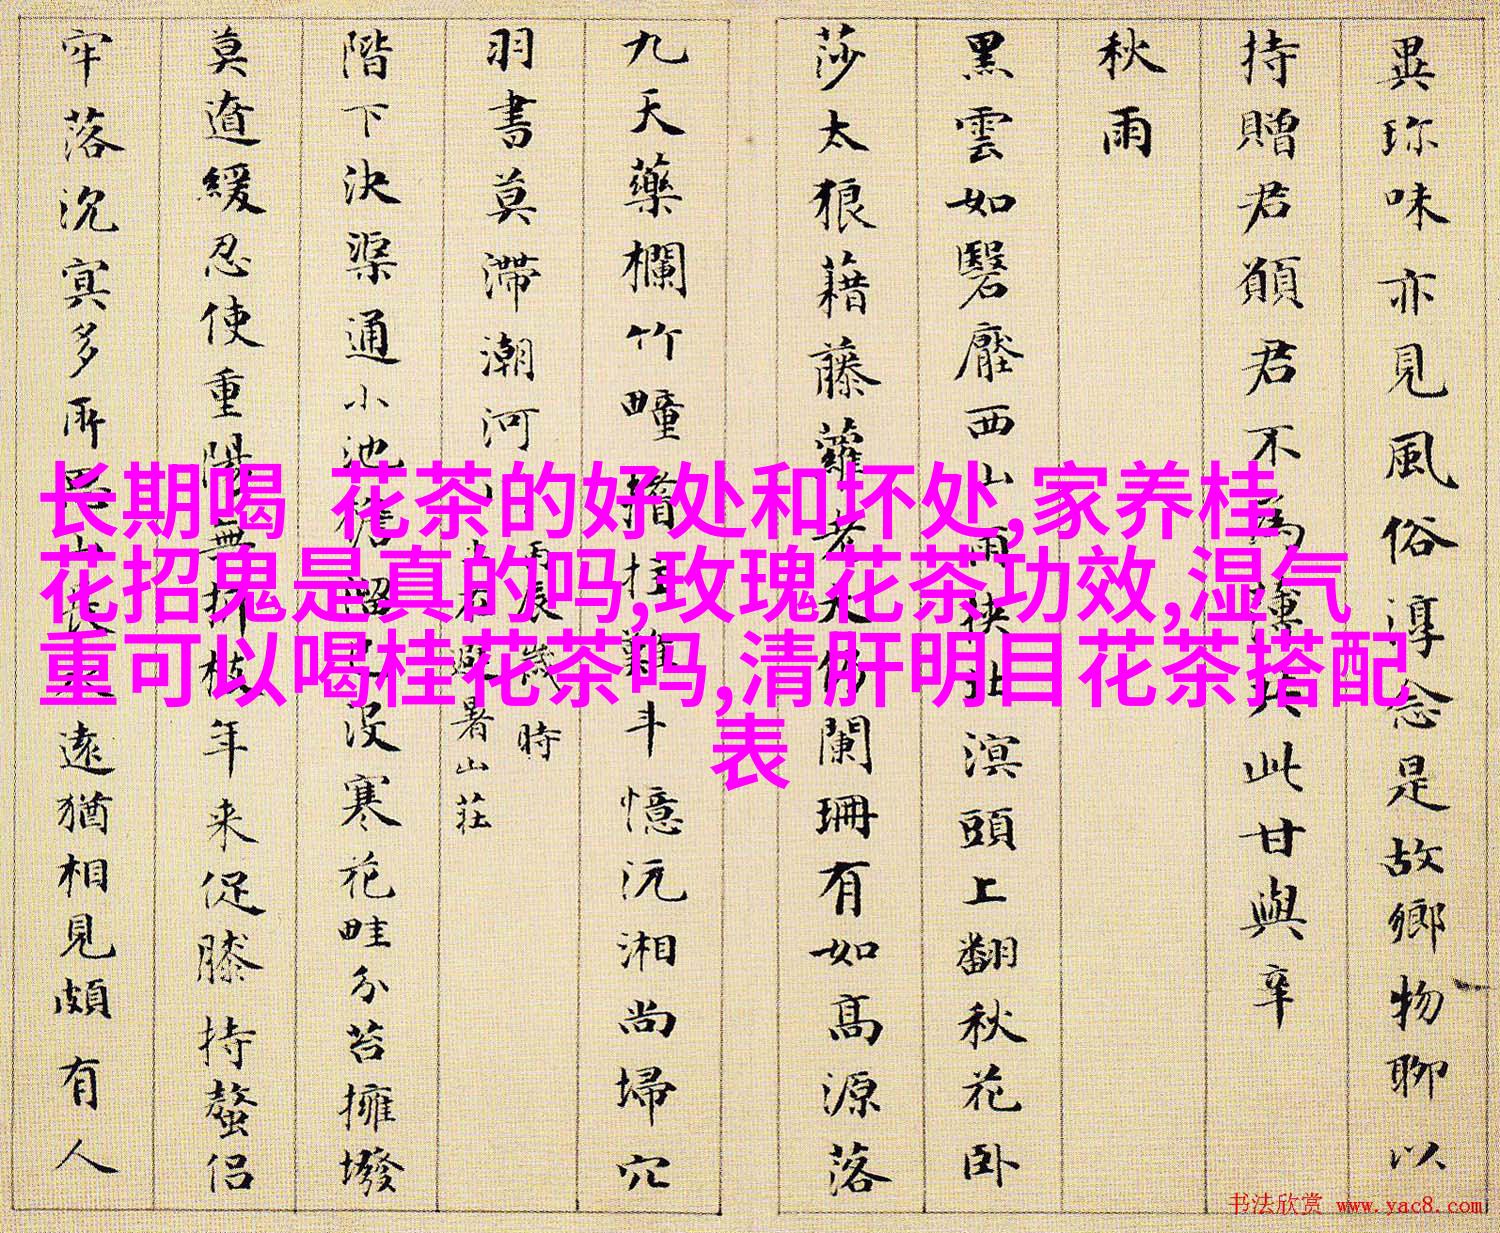 異珎味亦見風俗淳念是故鄉物聊以
持贈君願君不為嫌於此甘與辛
秋雨
黑雲如翳壓西山雨侠北溟頭上翻秋花卧
莎太狼藉藤蘿老大仍闌珊有如髙源落
九天藥欄竹疃猶拄難斗憶沅湘尚埽穴
羽書莫滯潮河
丙辰歲時
避暑山莊
階下決渠通小池
没寒花畦分苔擁墢
莫遒緩忍使重陽無
枝年来促膝持螯侣
牢落沉冥多所
遠猶相見頗有人
长期喝 花茶的好处和坏处,家养桂
花招鬼是真的吗,玫瑰花茶功效,湿气
重可以喝桂花茶吗,清肝明目花茶搭配
表
书法欣赏 www.yac8.com